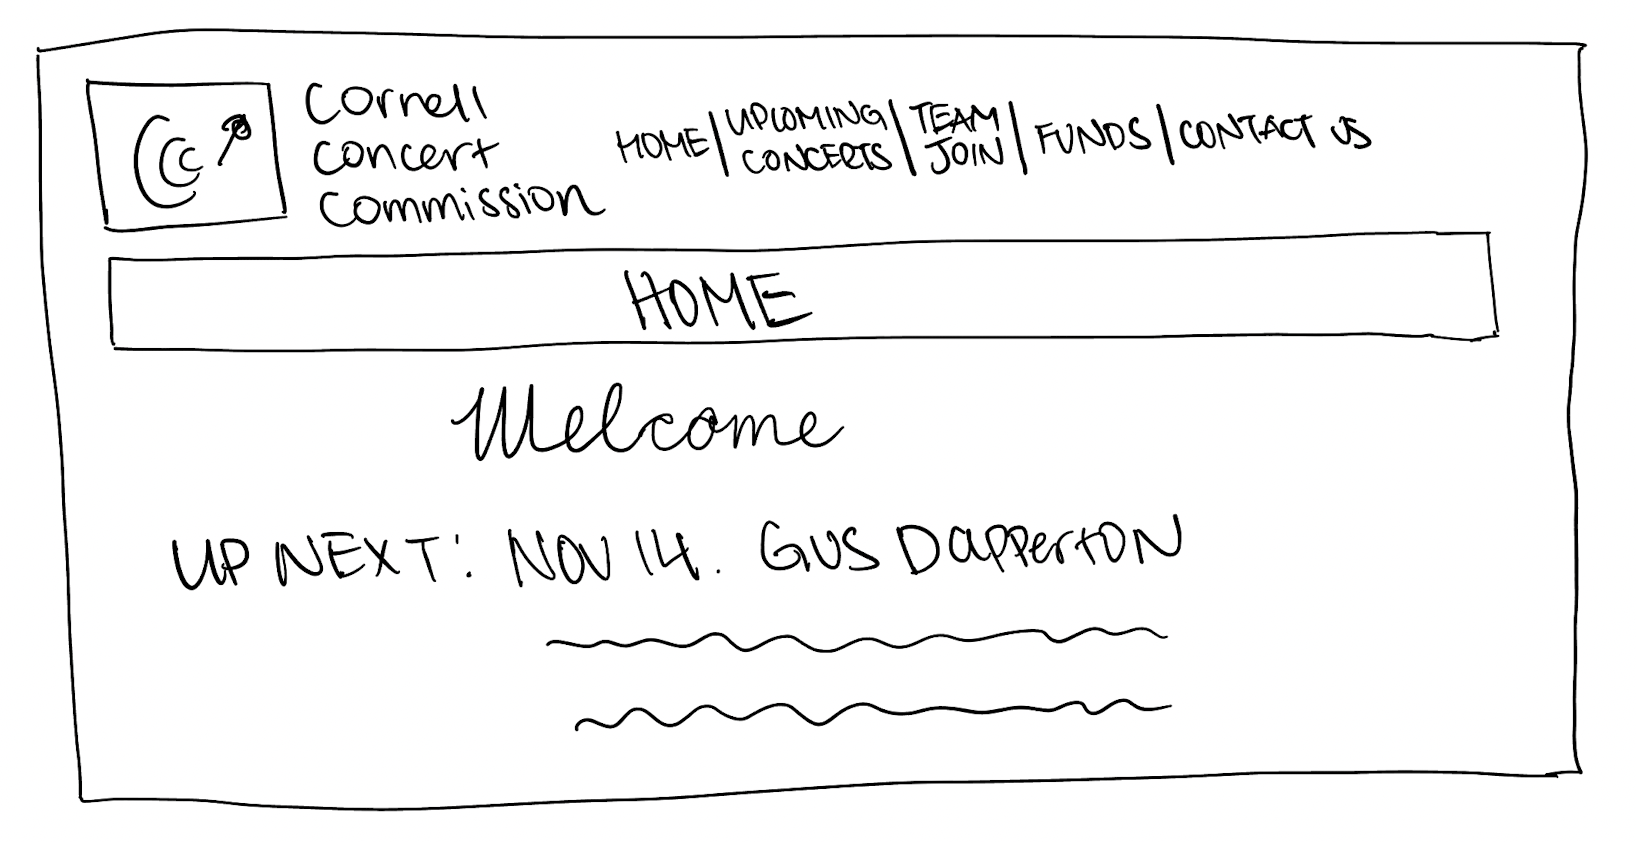 CCC
Cornell
concert
commission
HOME | UPCOMING CONCERTS | TEAM JOIN | FUNDS | CONTACT US
HOME
Welcome
UP NEXT: NOV 14. GUS DAPPERTON